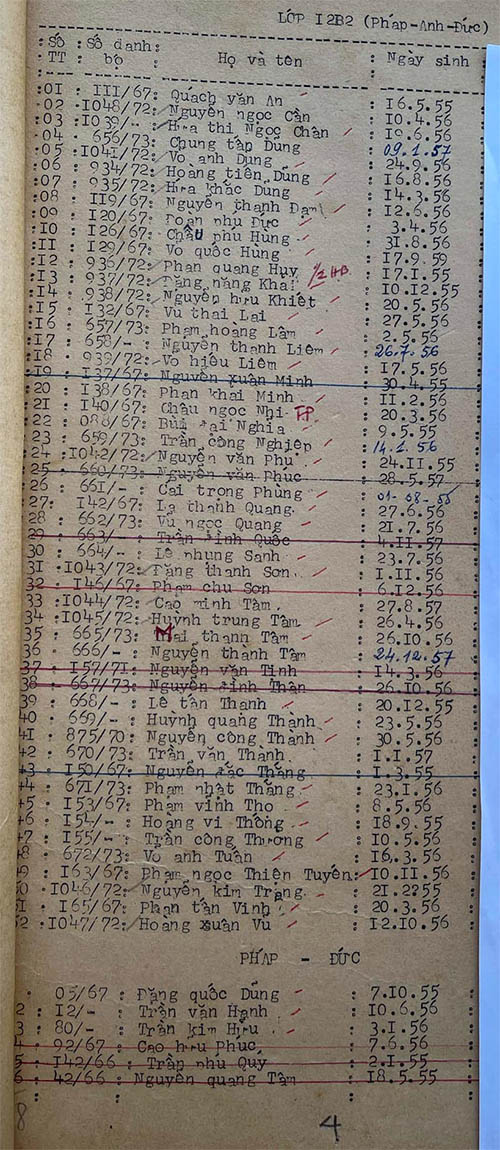 LỚP I2B2 (Pháp-Anh-Đức)
Số TT : Số danh bộ : Họ và tên : Ngày sinh
:01 : III/67: Quách văn An : I6.5.55
:02 :I048/72: Nguyễn ngọc Cần : I0.4.56
:03 :I039/-: Hứa thi Ngọc Chân : I9.6.56
:04 : 656/73: Chung tấp Dũng : 09.1.57
:05 :I041/72: Võ anh Dũng : 24.9.56
:06 : 934/72: Hoàng tiến Dũng : I6.8.56
:07 : 935/72: Hứa khắc Dũng : I4.3.56
:08 : II9/67: Nguyễn thanh Đạm : I2.6.56
:09 : I20/67: Đoàn phú Đức : 3.4.56
:I0 : I26/67: Châu phú Hùng : 3I.8.56
:II : I29/67: Võ quốc Hùng : I7.9.59
:I2 : 936/72: Phan quang Huy 1/2 HB : I7.I.55
:I3 : 937/72: Đặng năng Khai : I0.I2.55
:I4 : 938/72: Nguyễn hưu Khiết : 20.5.56
:I5 : I32/67: Vũ thai Lai : 27.5.56
:I6 : 657/73: Phạm hoàng Lâm : 2.5.56
:I7 : 658/-: Nguyễn thanh Liêm : 26.7.56
:I8 : 939/72: Võ hiếu Liêm : I7.5.56
:I9 : I37/67: Nguyễn xuân Minh : 30.4.55
:20 : I38/67: Phan khai Minh : II.2.56
:2I : I40/67: Châu ngọc Nhi T.P : 20.3.56
:22 : 088/67: Bùi đại Nghĩa : 9.5.55
:23 : 659/73: Trần công Nghiệp : 14.1.56
:24 :I042/72: Nguyễn văn Phú : 24.II.55
:25 : 660/73: Nguyễn văn Phúc : 28.5.57
:26 : 66I/- : Cai trọng Phùng : 01-08-55
27: I42/67: La thanh Quang : 27.6.56
28 : 662/73: Vũ ngọc Quang : 2I.7.56
29 : 663/-: Trần đình Quốc : 4.II.57
30 : 664/-: Lê phung Sanh : 23.7.56
3I :I043/72: Đặng thanh Sơn : I.II.56
32 : I46/67: Phạm chu Sơn : 6.I2.56
33 :I044/72: Cao minh Tâm : 27.8.57
34 :I045/72: Huỳnh trung Tâm : 26.4.56
35 : 665/73: Mai thanh Tâm : 26.I0.56
36 : 666/-: Nguyễn thành Tâm : 24.12.57
37 : I57/7I: Nguyễn văn Tinh : I4.3.56
38 : 667/73: Nguyễn đình Thân : 26.I0.56
39 : 668/-: Lê tấn Thanh : 20.I2.55
40 : 669/-: Huỳnh quang Thành : 23.5.56
4I : 875/70: Nguyễn công Thành : 30.5.56
42 : 670/73: Trần văn Thành : I.I.57
43 : I50/67: Nguyễn đắc Thắng : I.3.55
44 : 67I/73: Phạm nhật Thắng : 23.I.56
45 : I53/67: Phạm vinh Thọ : 8.5.56
46 : I54/-: Hoàng vi Thống : I8.9.55
47 : I55/-: Trần công Thương : I0.5.56
48 : 672/73: Võ anh Tuấn : I6.3.56
49 : I63/67: Phạm ngọc Thiên Tuyến: I0.II.56
50 :I046/72: Nguyễn kim Trạng : 2I.2?55
5I : I65/67: Phan tấn Vinh : 20.3.56
52 :I047/72: Hoàng xuân Vũ : I2.I0.56
PHÁP - ĐỨC
: 05/67 : Đặng quốc Dũng : 7.I0.55
2 : I2/- : Trần văn Hạnh : I0.6.56
3 : 80/- : Trần kim Hữu : 3.I.56
4 : 92/67 : Cao hưu Phuc : 7.6.56
5 : I42/66 : Trần phú Quý : 2.I.55
6 : 42/66 : Nguyễn quang Tâm : I8.5.55
58
4